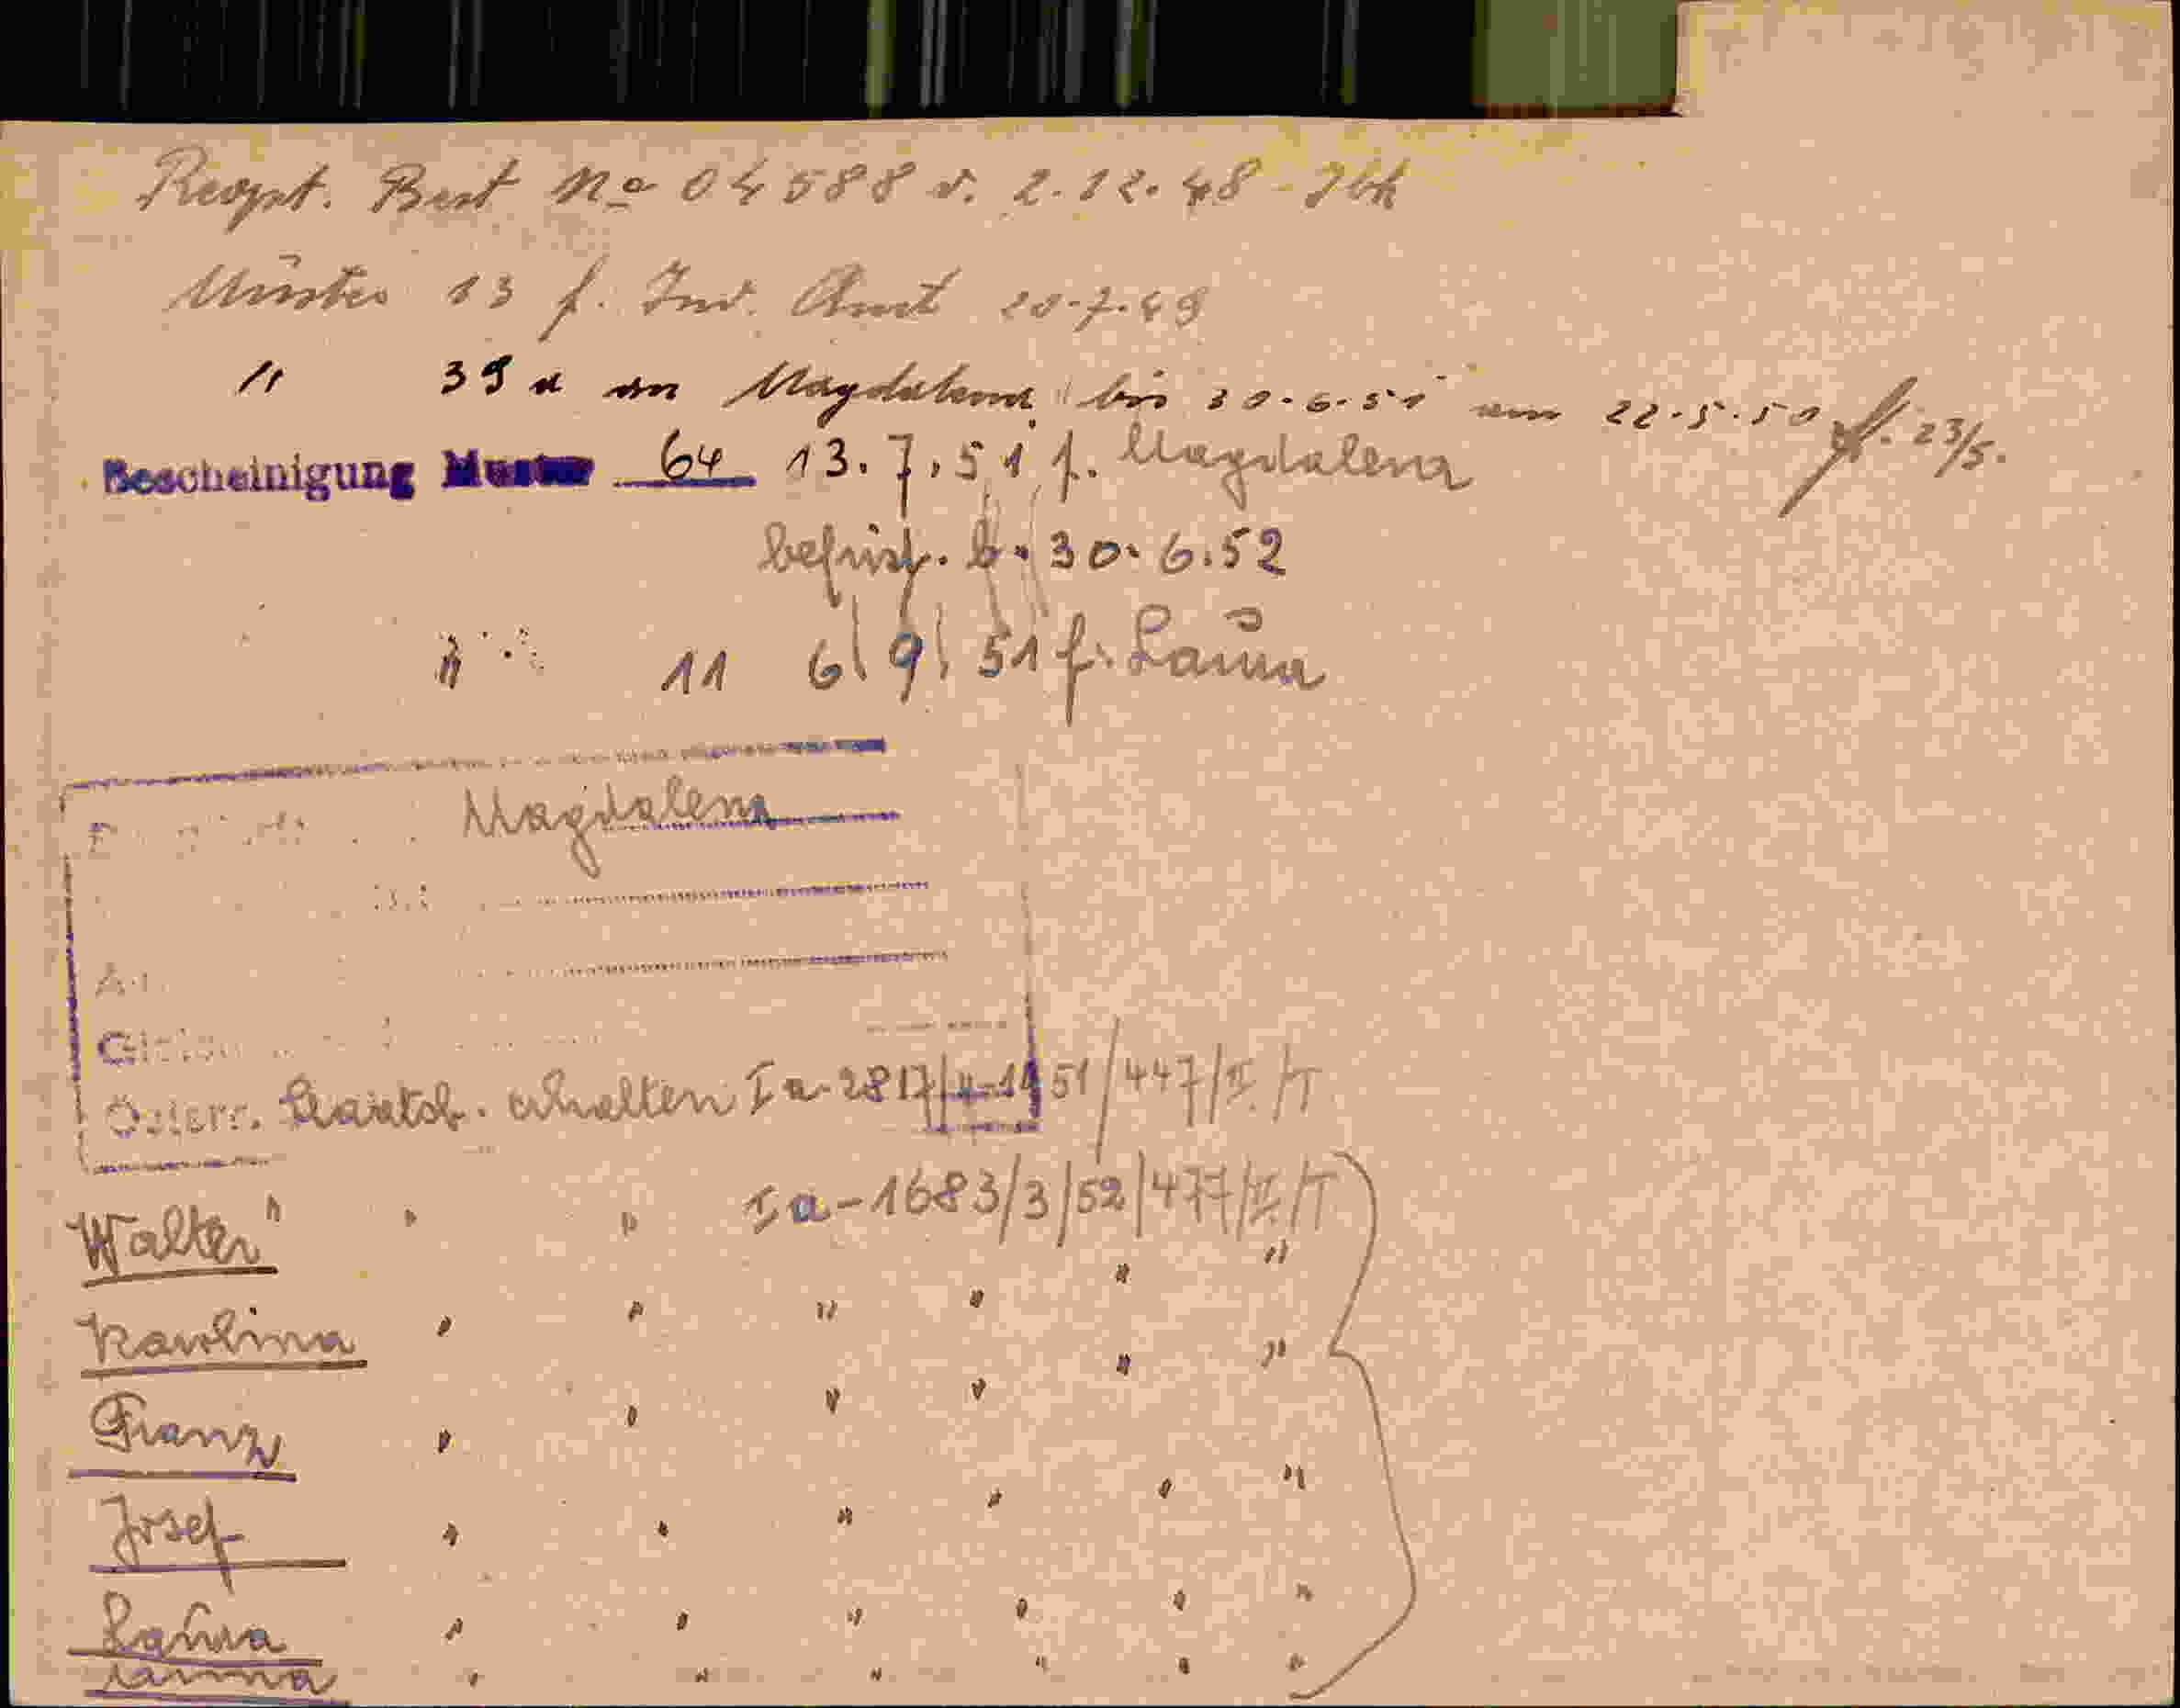 Best No 04588 v. 2.12.48 - Ibk
Muster 13 f. Amt 20.7.49
" 39 an Magdalena bis 30.6.51 am 22.5.50 23/5.
Bescheinigung Muster 64 13.7.51 f. Magdalena
befrist. b. 30.6.52
" 11 6/9/51 f. Laura
Magdalena
Österr. Staatsb. erhalten Ia-2817/ 51/447/II./T
Walter " " " Ia-1683/3/52/477/II./T
Karolina " " " " " "
Franz " " " " " "
Josef " " " " " "
Laura " " " " " "
" " " " " "